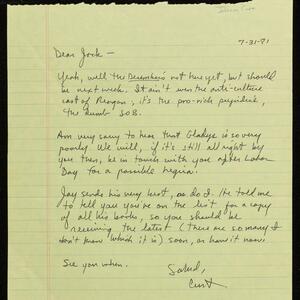 7-31-91
Dear Jack —
Yeah, well the December's not here yet, but should
be next week. It ain't even the anti-culture
cast of Reagan, it's the pro-rich prejudice,
the dumb SOB.
Am very sorry to hear that Gladys is so very
poorly. We will, if it's still all right by
you then, be in touch with you after Labor
Day for a possible
Jay sends his very best, as do I. He told me
to tell you you're on the list for a copy
of all his books, so you should be
receiving the latest (there are so many I
don't know which it is) soon, or have it now.
See you when.
Salud,
Curt